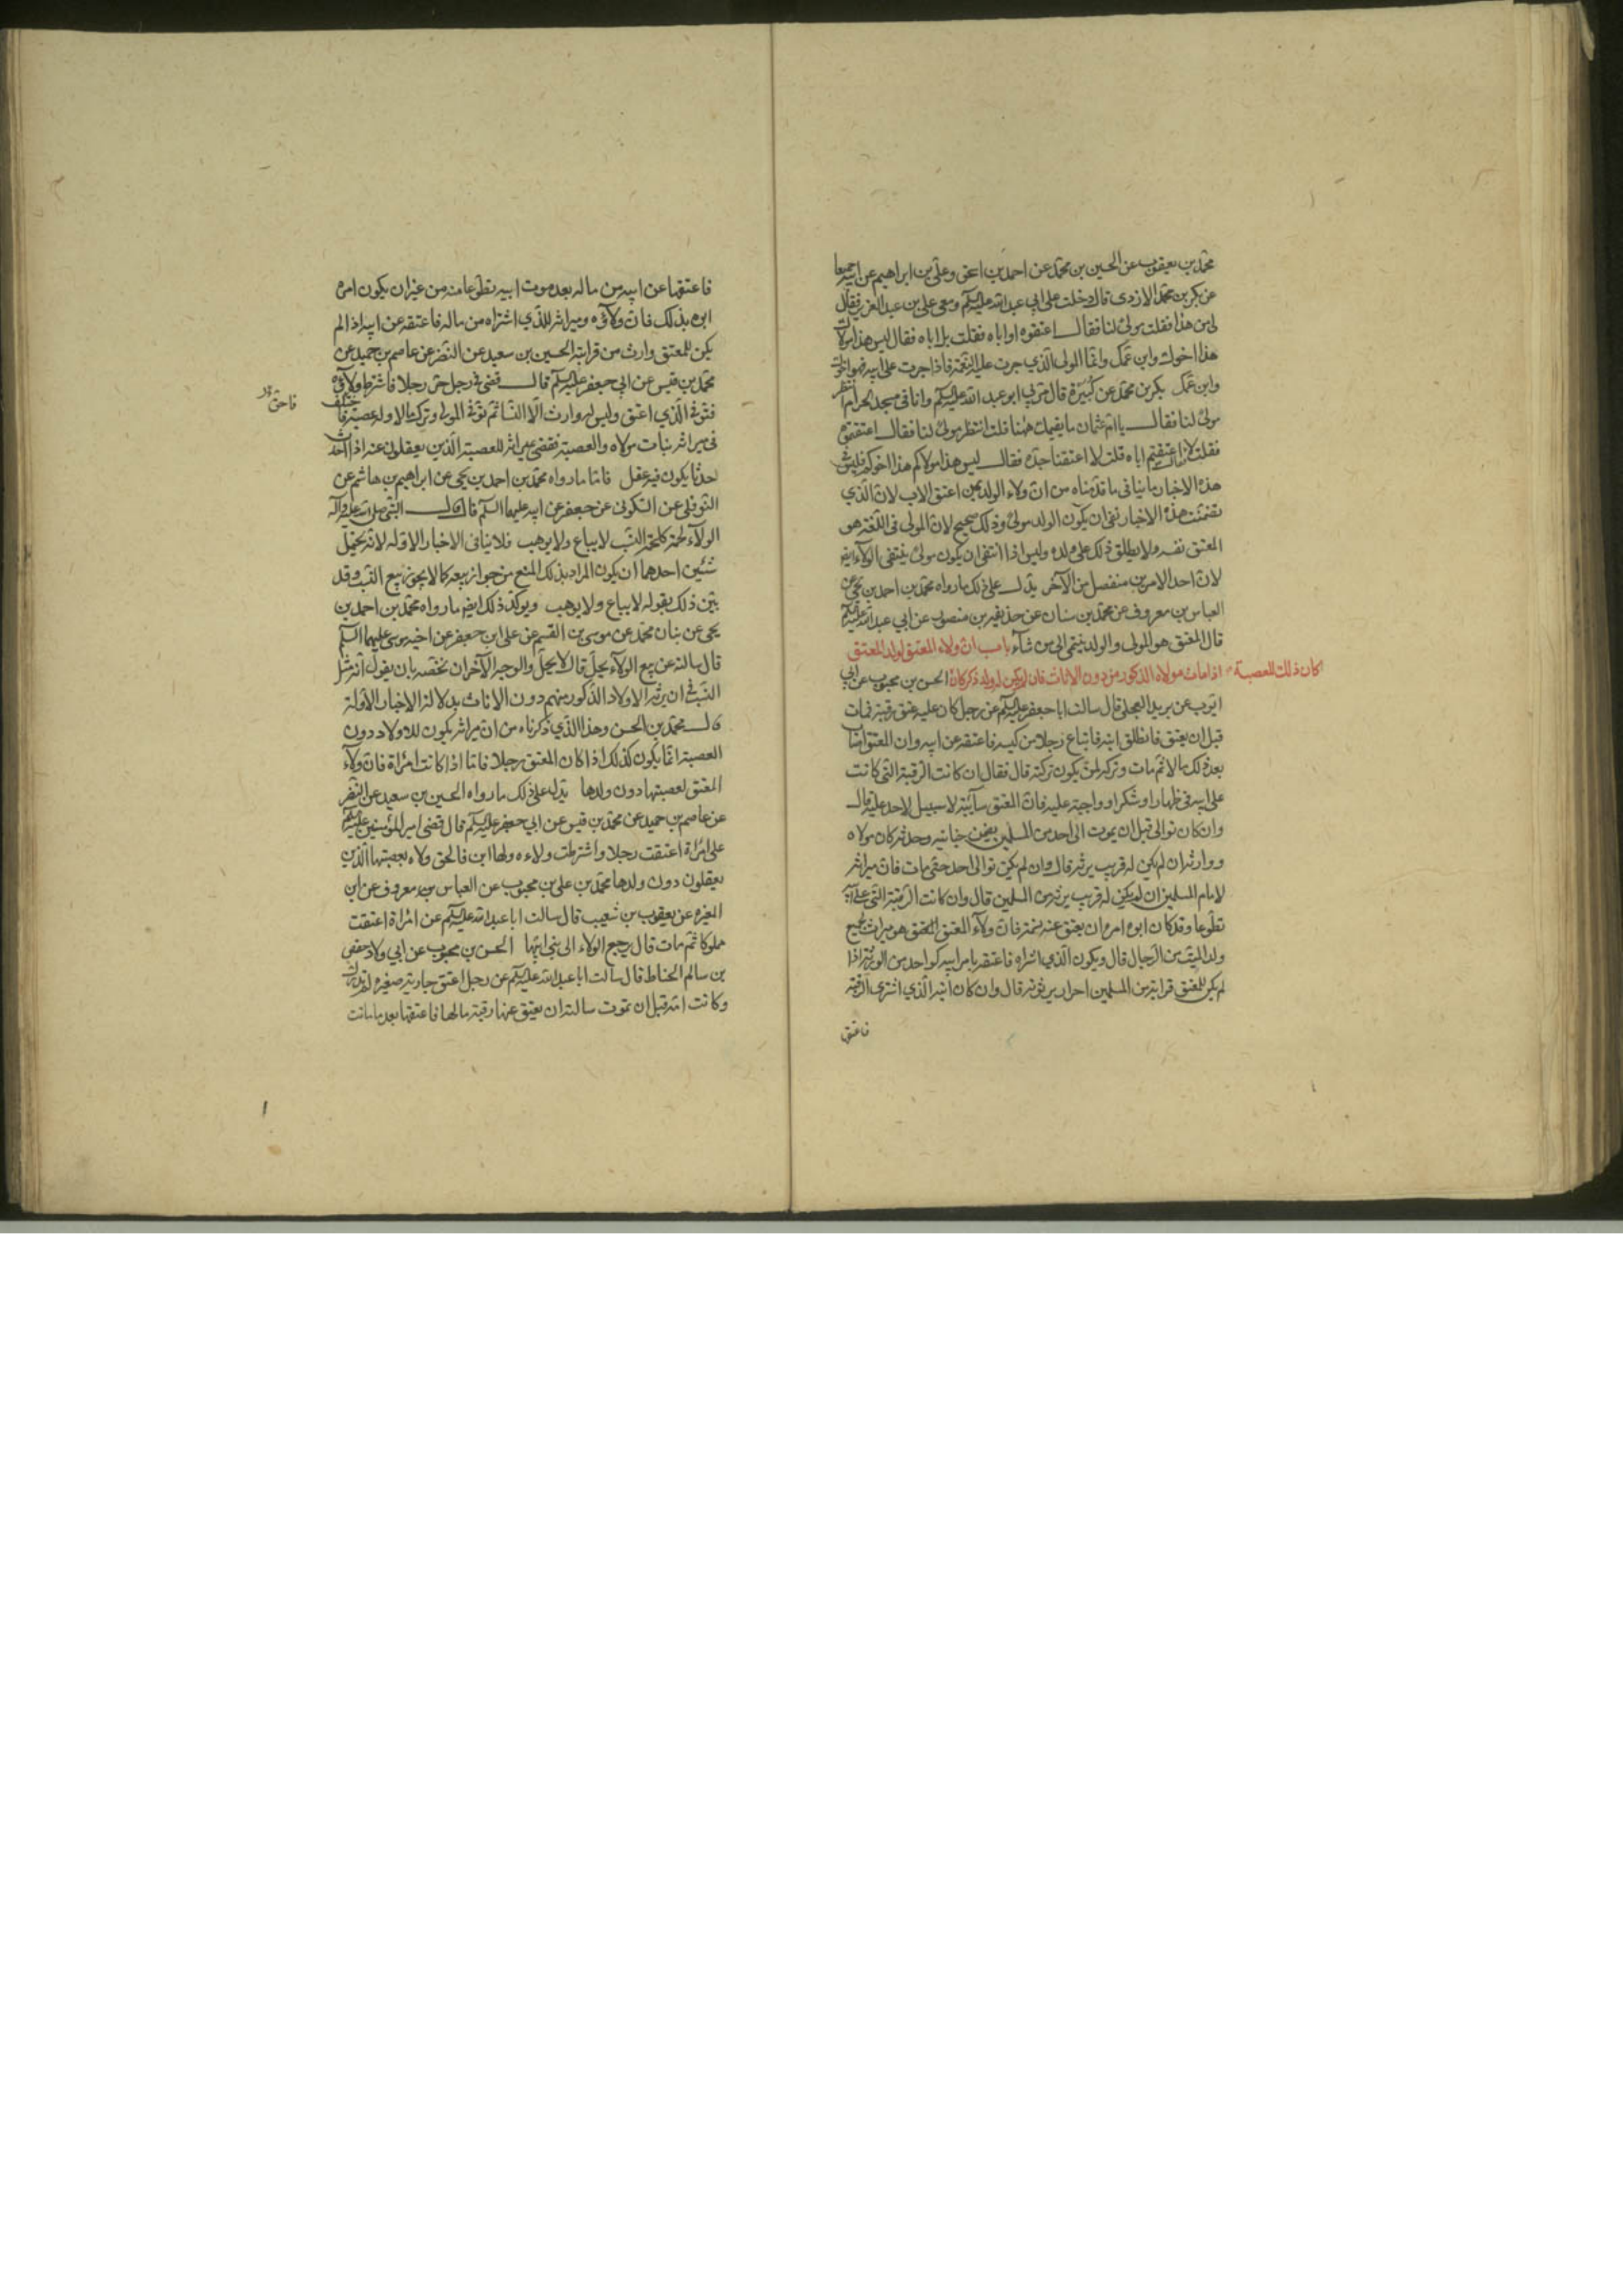 محمد بن يعقوب عن الحسين بن محمد عن احمد بن اسحق وعلي بن ابراهيم عن ابيه جميعا
عن بكر بن محمد الازدى قال دخلت على ابي عبد الله عليه السلم ومعى على بن عبد العزيز فقال
لى من هذا فقلت مولى لنا فقال اعتقتموه او اباه فقلت بل اباه فقال ليس هذا مولاك
هذا اخوك وابن عمك وانما المولى الذي جرت عليه النعمة فاذا جرت على ابيه فهو اخوك
وابن عمك بكر بن محمد عن كثيرة قال مر بي ابو عبد الله عليه السلم وانا في مسجد الحرام انتظر
مولى لنا فقال يا ام عثمان ما يقيمك ههنا قلت انتظر مولى لنا فقال اعتقتموه
فقلت لا فقال اعتقتم اباه قلت لا اعتقنا جده فقال ليس هذا مولاكم هذا اخوكم فليس
هذه الاخبار ما ينافى ما قدمناه من ان ولاء الولد لمن اعتق الاب لان الذي
تضمنت هذه الاخبار نفى ان يكون الولد مولى وذلك صحيح لان المولى فى اللغة هو
المعتق نفسه ولا يطلق ذلك على ولده وليس اذا انتفى ان يكون مولى ينتفى الولاء ايضا
لان احد الامرين منفصل من الآخر يدل على ذلك ما رواه محمد بن احمد بن يحيى عن
العباس بن معروف عن محمد بن سنان عن حذيفة بن منصور عن ابي عبد الله عليه السلم
قال المعتق هو المولى والولد ينتمى الى من شآء باب ان ولاء المعتق لولد المعتق
اذا مات مولاه الذكور منهم دون الاناث فان لم يكن له ولد ذكر كان الحسن بن محبوب عن ابي
كان ذلك للعصبة
ايوب عن بريد العجلى قال سالت ابا جعفر عليه السلم عن رجل كان عليه عتق رقبة فمات
قبل ان يعتق فانطلق ابنه فابتاع رجلا من كيسه فاعتقه عن ابيه وان المعتق اصاب
بعد ذلك مالا ثم مات وتركه لمن يكون تركته قال فقال ان كانت الرقبة التى كانت
على ابيه فى ظهار او شكر او واجبة عليه فان المعتق سآئبة لا سبيل لاحد عليه قال
وان كان توالى قبل ان يموت الى احد من المسلمين يضمن جنايته وحدثه كان مولاه
ووارثه ان لم يكن له قريب يرثه قال وان لم يكن توالى احد حتى مات فان ميراثه
لامام المسلمين ان لم يكن له قريب يرثه من المسلمين قال وان كانت الرقبة التى على ابيه
تطوعا وقد كان ابوه امره ان يعتق عنه نسمة فان ولآء المعتق هو ميراث لجميع
ولد الميت من الرجال قال ويكون الذي اشتراه فاعتقه بامر ابيه كواحد من الورثة اذا
لم يكن للمعتق قرابة من المسلمين احرار يرثونه قال وان كان ابنه الذي اشترى الرقبة
فاعتقها
فاعتقها عن ابيه من ماله بعد موت ابيه تطوعا منه من غير ان يكون امره
ابوه بذلك فان ولآؤه وميراثه للذي اشتراه من ماله فاعتقه عن ابيه اذا لم
يكن للمعتق وارث من قرابته الحسين بن سعيد عن النضر عن عاصم بن حميد عن
محمد بن قيس عن ابي جعفر عليه السلم قال قضى فى رجل حرر رجلا فاشترط ولآؤه
فتوفى الذي اعتق وليس له وارث الا النسآء ثم توفى المولى وترك مالا وله عصبة فاختلف
فاحتق
فى ميراثه بنات مولاه والعصبة فقضى بميراثه للعصبة الذين يعقلون عنه اذا احدث
حدثا يكون فيه عقل فاما ما رواه محمد بن احمد بن يحيى عن ابراهيم بن هاشم عن
النوفلى عن السكونى عن جعفر عن ابيه عليهما السلم قال قال النبى صلى الله عليه وآله
الولآء لحمة كلحمة النسب لا يباع ولا يوهب فلا ينافى الاخبار الاولة لانه يحتمل
شيئين احدهما ان يكون المراد بذلك المنع من جواز بيعه كما لا يجوز بيع النسب وقد
بين ذلك بقوله لا يباع ولا يوهب ويوكد ذلك ايضا ما رواه محمد بن احمد بن
يحيى عن بنان محمد عن موسى بن القسم عن على بن جعفر عن اخيه موسى عليهما السلم
قال سالته عن بيع الولآء يحل قال لا يحل والوجه الآخر ان نخصه بان يقول انه مثل
النسب فى ان يرثه الاولاد الذكور منهم دون الاناث بدلالة الاخبار الاولة
قال محمد بن الحسن وهذا الذي ذكرناه من ان ميراثه يكون للاولاد دون
العصبة انما يكون كذلك اذا كان المعتق رجلا فاما اذا كانت امراة فان ولآء
المعتق لعصبتها دون ولدها يدل على ذلك ما رواه الحسين بن سعيد عن النضر
عن عاصم بن حميد عن محمد بن قيس عن ابي جعفر عليه السلم قال قضى امير المؤمنين عليه السلم
على امراة اعتقت رجلا واشترطت ولاءه ولها ابن فالحق ولاءه بعصبتها الذين
يعقلون دون ولدها محمد بن على بن محبوب عن العباس بن معروف عن ابن
المغيره عن يعقوب بن شعيب قال سالت ابا عبد الله عليه السلم عن امراة اعتقت
مملوكا ثم مات قال يرجع الولاء الى بنى ابيها الحسن بن محبوب عن ابي ولاد حفص
بن سالم الحناط قال سالت ابا عبد الله عليه السلم عن رجل اعتق جارية صغيره لم تدرك
وكانت امه قبل ان تموت سالته ان يعتق عنها رقبة من مالها فاعتقها بعد ما ماتت